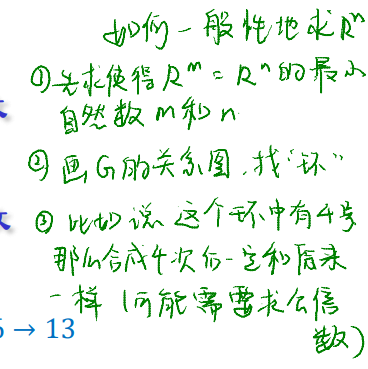 如何一般性地求Rⁿ
①先求使得Rᵐ = Rⁿ的最小
自然数m和n
②画G的关系图,找“环”
③比如说这个环中有4号
那么合成4次后一定和原来
一样(可能需要求公倍
数)
→ 13